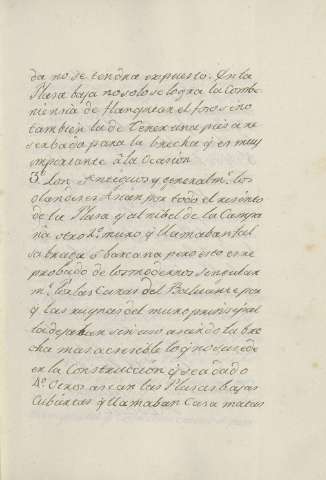 da no se tendra expuesto. En la
Plasa baja no solo se logra la Combe
niensia de flanquear el foso sino
tambien la de tener una piesa re
serbada para la brecha q es muy
ymportante â la Ocasion
3º Los Antiguos y generalmte. los
olandeses Asian por todo el resinto
de la Plasa y al nibel de la Campa
ña otro 2º muro q llamaban fal
sabraga ô barcana pero esto es re
probado de los modernos singular
me. las Caras del Baluarte por
q las ruynas del muro prinsipal
la dejaban sin uso asiendo la bre
cha mas acsesible lo q no susede
en la Construccion q se a dado
4º Otros asian las Plasas bajas
Cubiertas q llamaban Casa matas